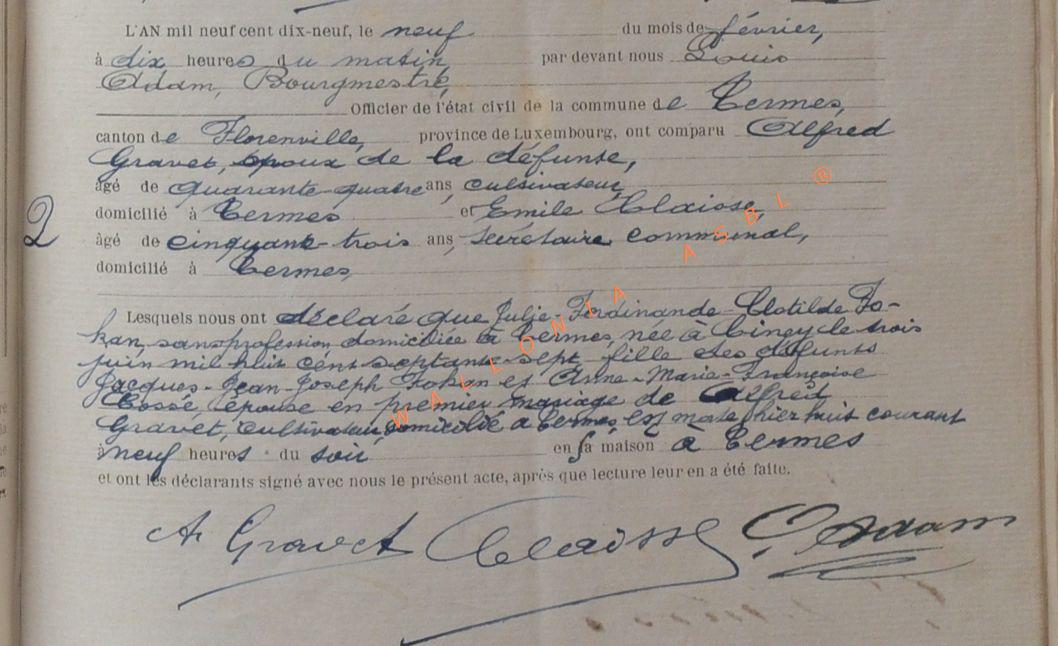 L'AN mil neuf cent dix-neuf, le neuf du mois de février,
à dix heures du matin, par devant nous Louis
Adam, Bourgmestre,
Officier de l'état civil de la commune de Termes,
canton de Florenville, province de Luxembourg, ont comparu Alfred
Gravet, époux de la défunte,
âgé de quarante-quatre ans, cultivateur,
domicilié à Termes et Emile Claisse,
2
âgé de cinquante-trois ans, secrétaire communal,
domicilié à Termes,
Lesquels nous ont déclaré que Julie-Ferdinande-Clotilde
sans profession domiciliée à Termes, née à Ciney le trois
juin mil huit cent septante-sept, fille des défunts
Jacques-Jean-Joseph et Anne-Marie-Françoise
Cossé, épouse en premier mariage de Alfred
Gravet, cultivateur domicilié à Termes, est morte hier huit courant
à neuf heures du soir en sa maison à Termes
et ont les déclarants signé avec nous le présent acte, après que lecture leur en a été faite.
A Gravet Claisse L. Adam
WALLONIA ASBL ®